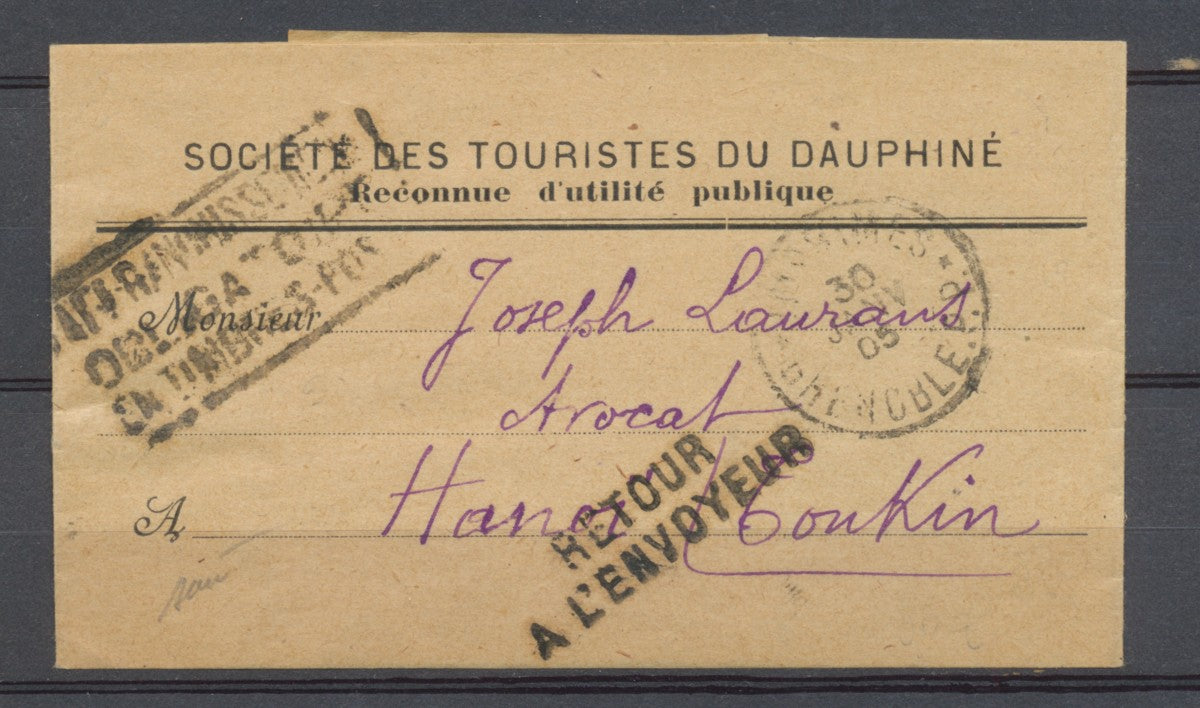 SOCIÉTÉ DES TOURISTES DU DAUPHINÉ
Reconnue d'utilité publique
AFFRANCHISSEMENT
OBLIGATOIRE
EN TIMBRES-POS
IMPRIMES
GRENOBLE
30
05
Monsieur Joseph Laurans
Avocat
A Hanoi Tonkin
RETOUR
A L'ENVOYEUR